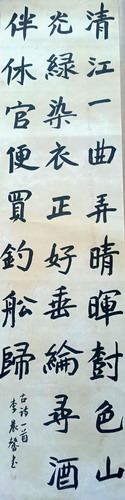 清江一曲弄晴暉對色山
光綠染衣正好垂綸尋酒
伴休官便買釣船歸
古詩一首
李晨馨书